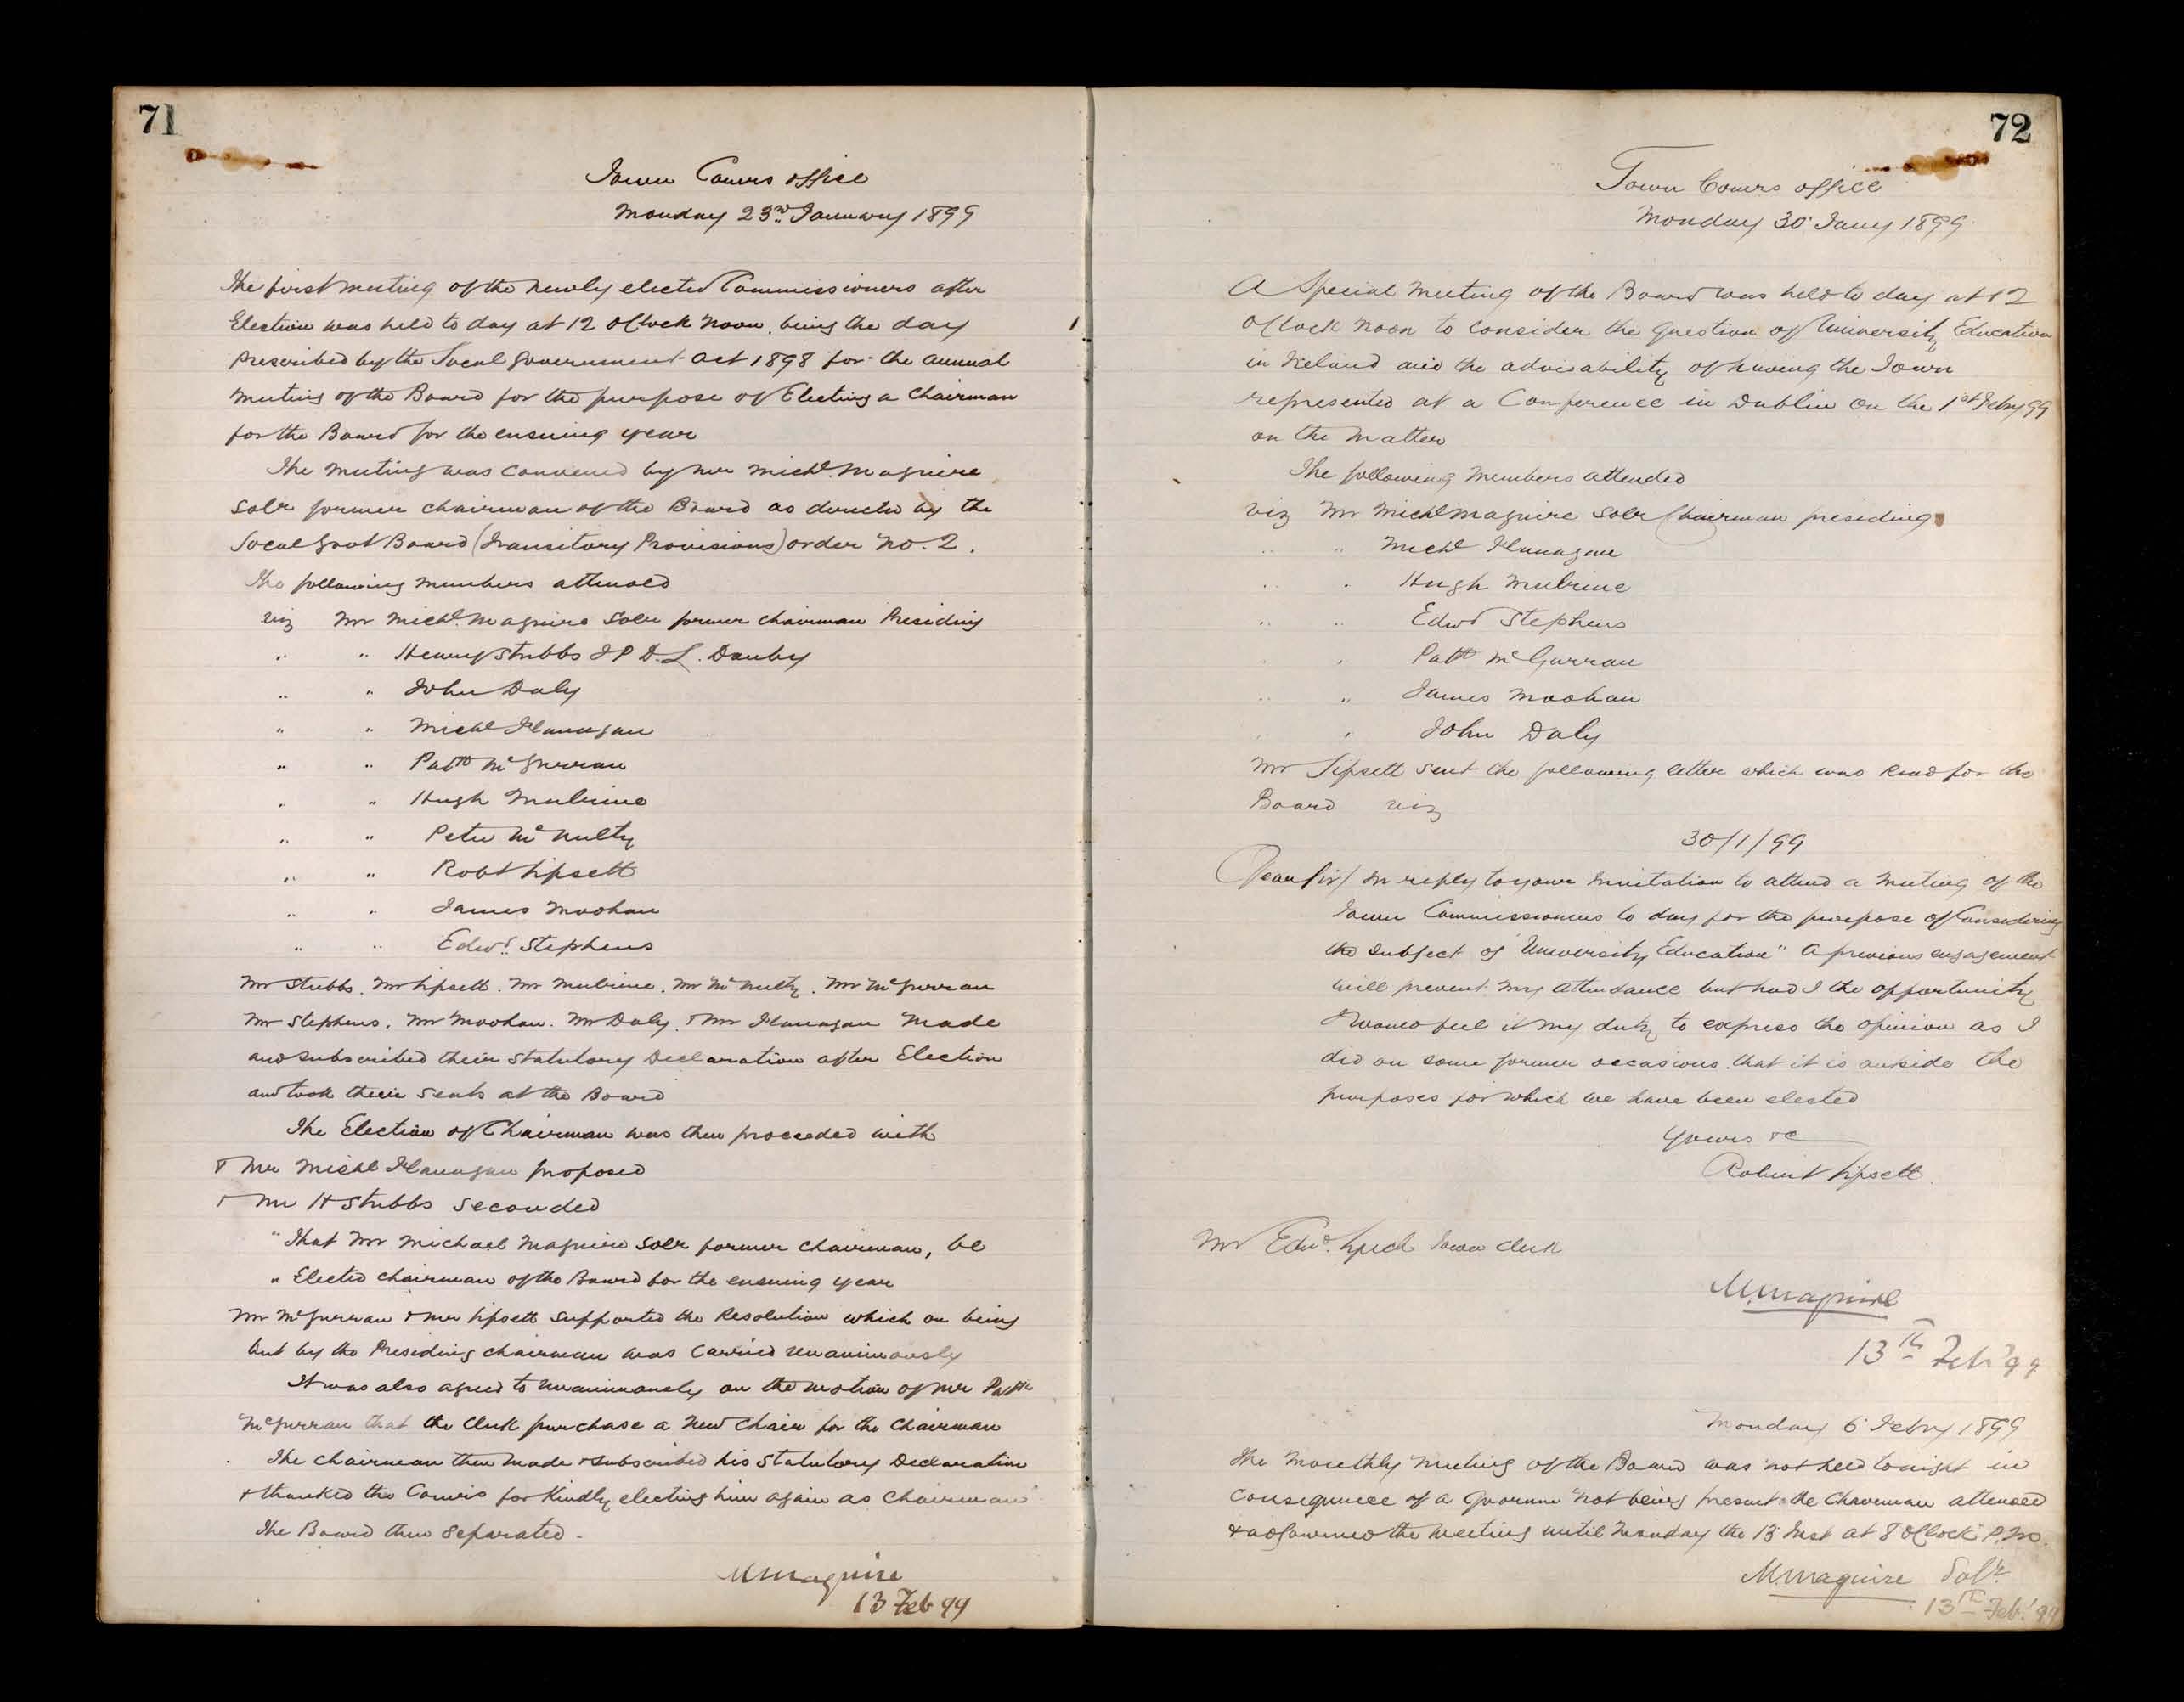 71
Town Comrs office
Monday 23rd January 1899
The first meeting of the newly elected Commissioners after
Election was held to day at 12 OClock noon, being the day
prescribed by the Local Government Act 1898 for the annual
meeting of the Board for the purpose of Electing a Chairman
for the Board for the ensuing year
The meeting was convened by Mr Michl. Maguire
Solr former chairman of the Board as directed by the
Local Govt Board (Transitory Provisions) order No. 2.
The following members attended
viz Mr Michl. Maguire Solr former chairman Presiding
" " Henry Stubbs J P D.L. Danby
" " John Daly
" " Michl Flanagan
" " Patk McGurran
" " Hugh Mulrine
" " Peter McNulty
" " Robt Lipsett
" " James Moohan
" " Edwd. Stephens
Mr Stubbs. Mr Lipsett. Mr Mulrine. Mr McNulty. Mr McGurran
Mr Stephens. Mr Moohan. Mr Daly. & Mr Flanagan made
and subscribed their Statutory Declaration after Election
and took their seats at the Board
The Election of Chairman was then proceeded with
& Mr Michl Flanagan proposed
& Mr H Stubbs seconded
"That Mr Michael Maguire Solr former chairman, be
" Elected chairman of the Board for the ensuing year
Mr McGurran & Mr Lipsett supported the Resolution which on being
put by the Presiding chairman was carried unanimously
It was also agreed to unanimously on the motion of Mr Patk
McGurran that the Clerk purchase a new chair for the Chairman
The chairman then made & subscribed his Statutory Declaration
& thanked the Comrs for Kindly electing him again as Chairman
The Board then separated.
M Maguire
13 Feb 99
72
Town Comrs office
Monday 30 Jany 1899
A Special meeting of the Board was held to day at 12
OClock noon to consider the question of University Education
in Ireland and the advisability of having the Town
represented at a Conference in Dublin on the 1st Feby 99
on the matter
The following members attended
viz Mr Michl Maguire Solr Chairman presiding
" " Michl Flanagan
" " Hugh Mulrine
" " Edwd Stephens
" " Patk McGurran
" " James Moohan
" " John Daly
Mr Lipsett sent the following letter which was read for the
Board viz
30/1/99
Dear Sir/ In reply to your invitation to attend a meeting of the
Town Commissioners to day for the purpose of Considering
the subject of "University Education" a previous engagement
will prevent my attendance but had I the opportunity
I would feel it my duty to express the opinion as I
did on some former occasions that it is outside the
purposes for which we have been elected
Yours &c
Robert Lipsett
Mr Edwd. Lynch Town Clerk
M. Maguire
13th Feb '99
Monday 6 Feby 1899
The monthly meeting of the Board was not held tonight in
consequence of a Quorum not being present. the Chairman attended
& adjourned the meeting until Monday the 13 Inst at 8 OClock P.M.
M. Maguire Solr
13th Feb. '99